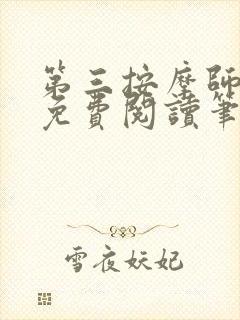 第三按摩師
免費閱讀筆
雪夜妖妃